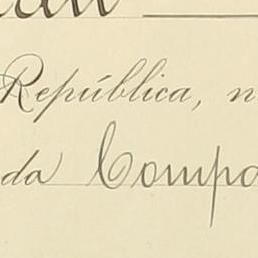 República, n
da Compa